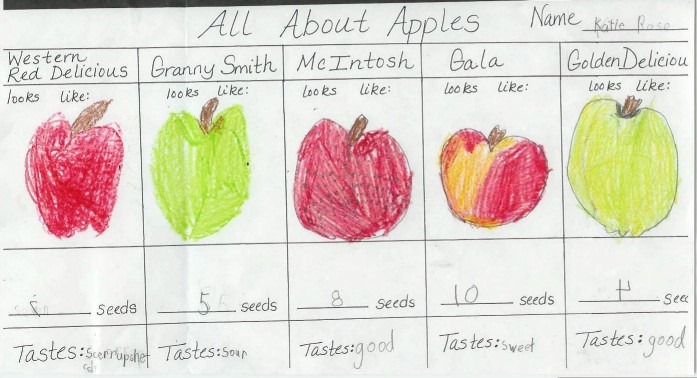 All About Apples
Name Katie Rose
Western
Red Delicious
Granny Smith
McIntosh
Gala
Golden Deliciou
looks like:
looks like:
looks like:
looks like:
looks like:
seeds
5 seeds
8 seeds
10 seeds
4 see
Tastes:
Tastes: Sour
Tastes: good
Tastes: Sweet
Tastes: good